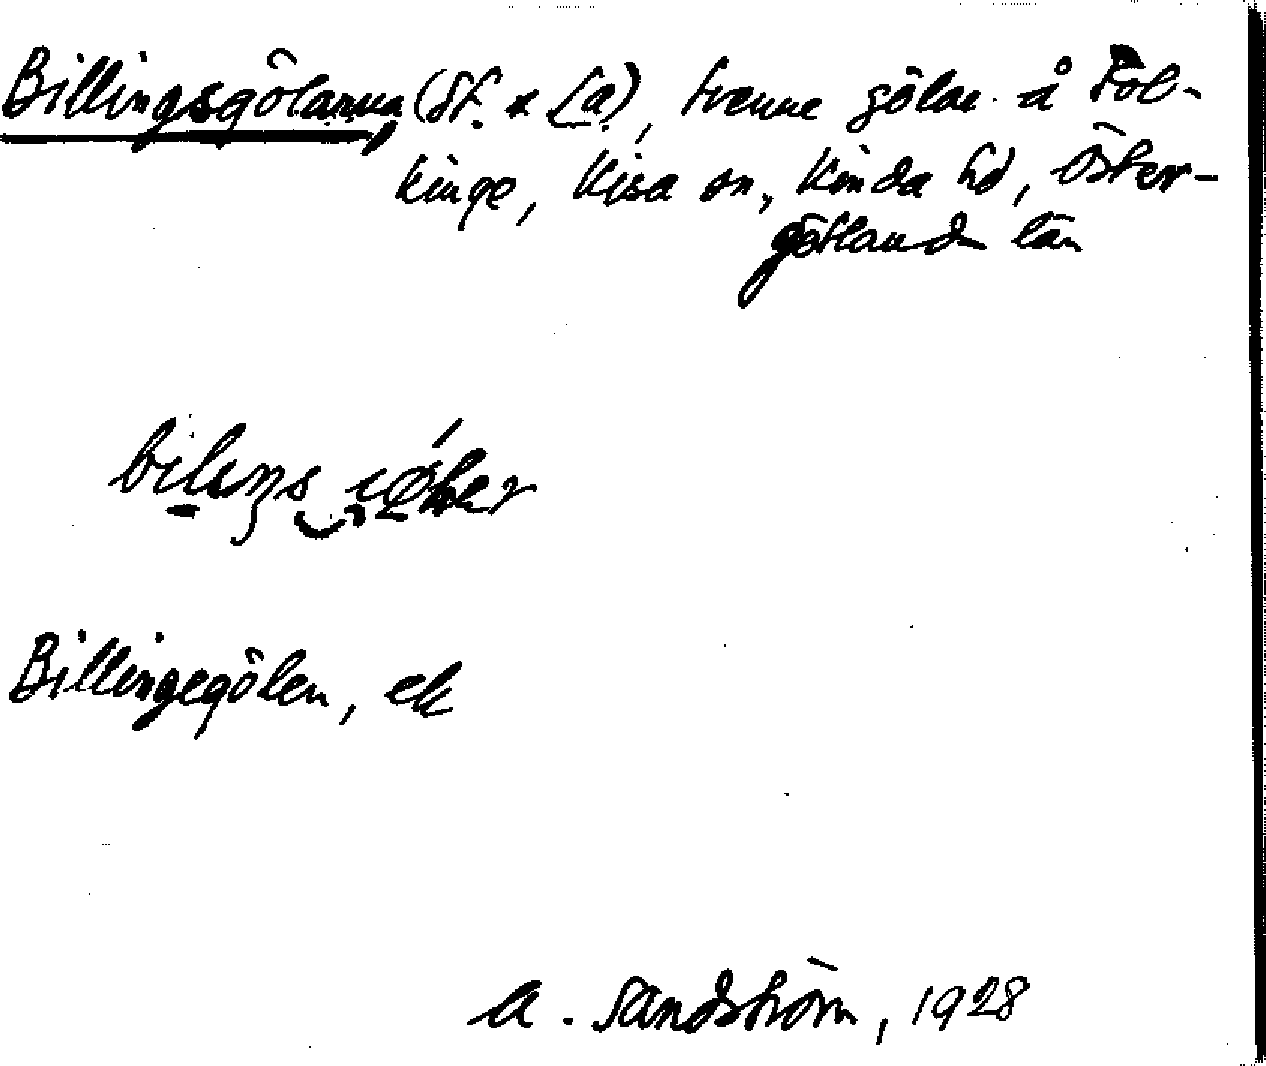 Billingsgölarna (St. & La), trenne gölar å Föl-
kinge, Kisa sn, Kinda hd, Öster-
götlands län
Billingegölen, ek
A. Sandström, 1928